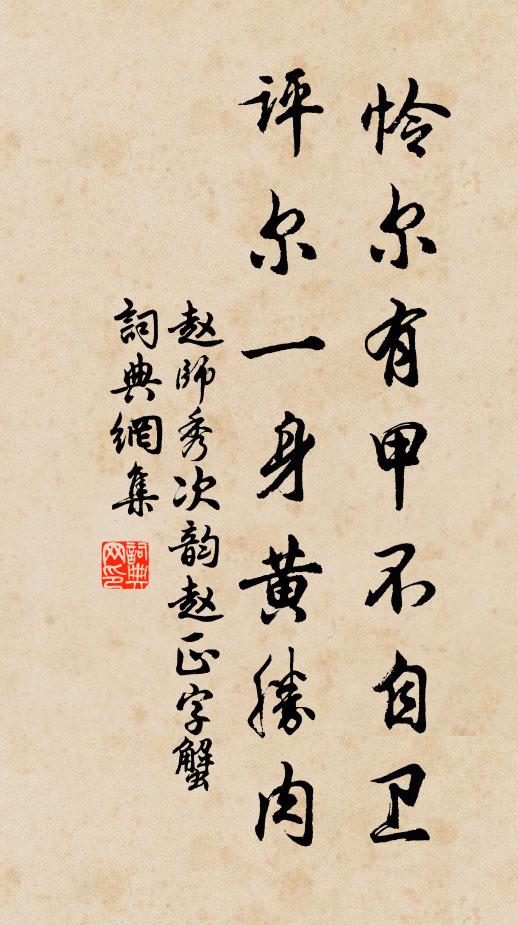 怜尔有甲不自卫
评尔一身黄勝肉
赵師秀次韵赵正字蟹
詞典網集
詞典網印